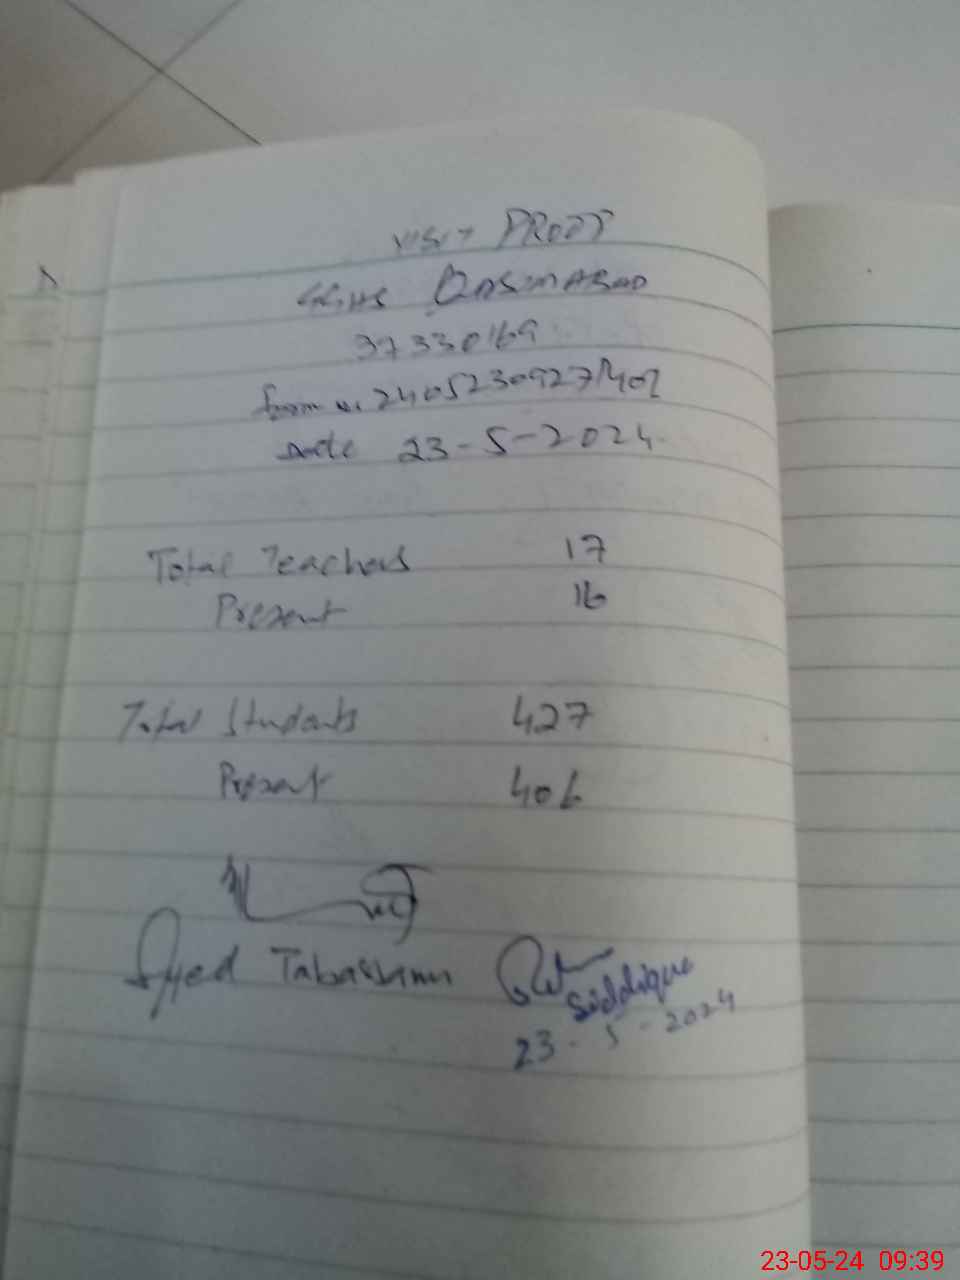 VISIT PROOF
GGHS QASIMABAD
37330169
form no. 24052309271402
Date 23-5-2024
Total Teachers 17
Present 16
Total Students 427
Present 406
Syed Tabassum
Siddique
23-5-2024
23-05-24 09:39